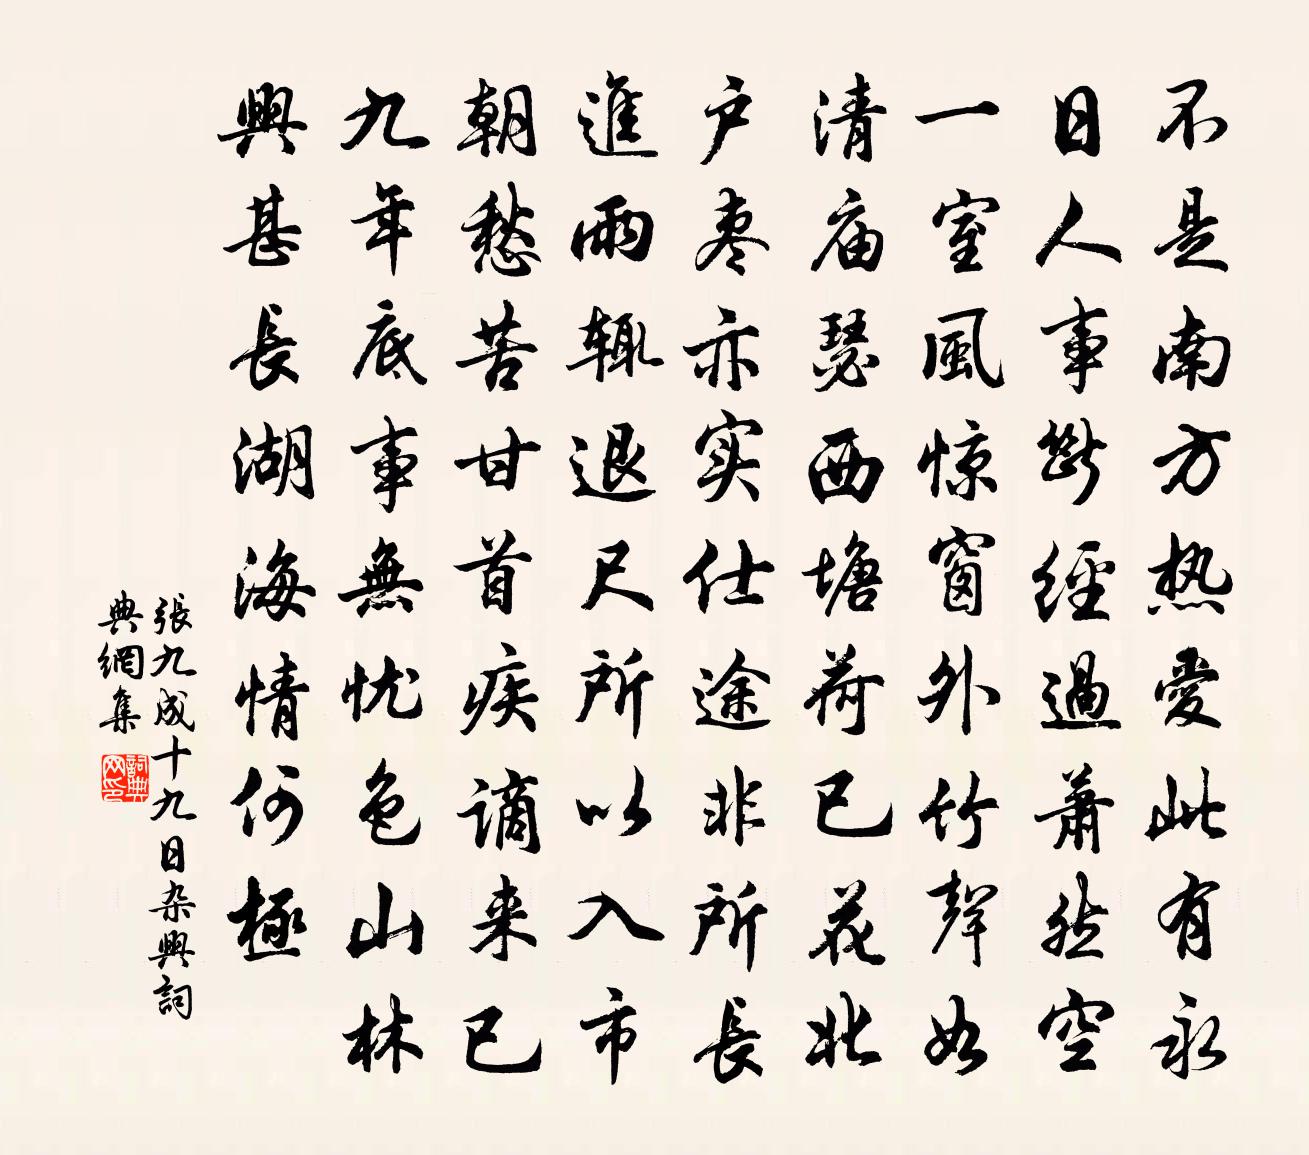 不是南方热愛此有永
日人事断經過蕭然空
一室風惊窗外竹聲如
清庙瑟西塘荷已花北
户枣亦实仕途非所長
進雨辄退尺所以入市
朝愁苦甘首疾謫来已
九年底事無忧色山林
興甚長湖海情何極
張九成十九日杂興詞
典網集
詞典
网印